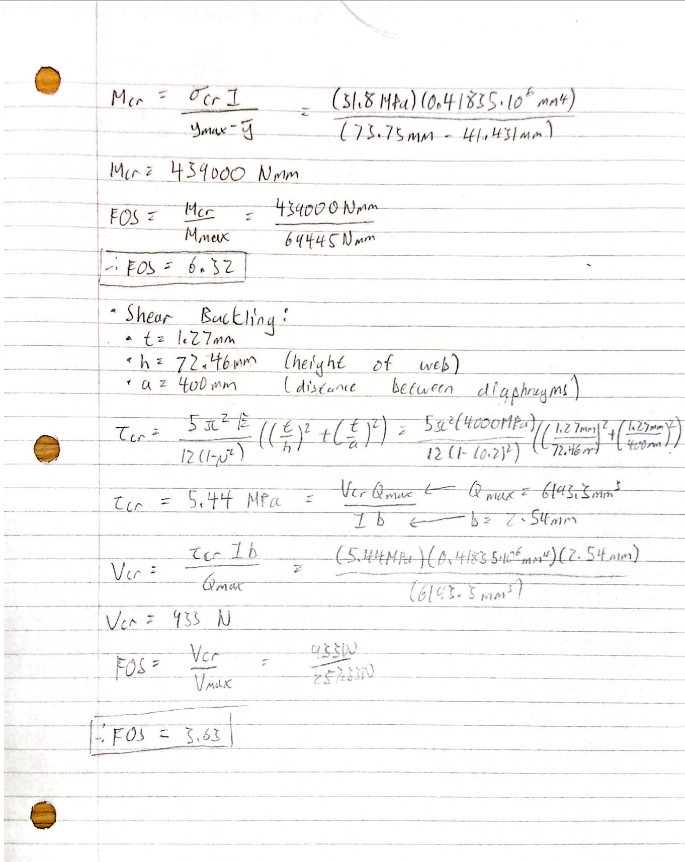 Mcr = σcr I / ymax - ȳ = (31.8 MPa)(0.41835·10⁶ mm⁴) / (73.75mm - 41.431mm)
Mcr = 439000 Nmm
FOS = Mcr / Mmax = 439000Nmm / 69445Nmm
∴ FOS = 6.32
• Shear Buckling:
• t = 1.27mm
• h = 72.46mm (height of web)
• a = 400mm (distance between diaphragms)
τcr = 5π²E / 12(1-μ²) ((t/h)² + (t/a)²) = 5π²(4000MPa) / 12(1-(0.2)²) ((1.27mm/72.46m)² + (1.27mm/400mm)²)
τcr = 5.44 MPa = Vcr Qmax / I b ← Qmax = 6193.3mm³ ← b = 2.54mm
Vcr = τcr I b / Qmax = (5.44MPa)(0.41835·10⁶mm⁴)(2.54mm) / (6193.3 mm³)
Vcr = 933 N
FOS = Vcr / Vmax = 933N / 257.33N
∴ FOS = 3.63